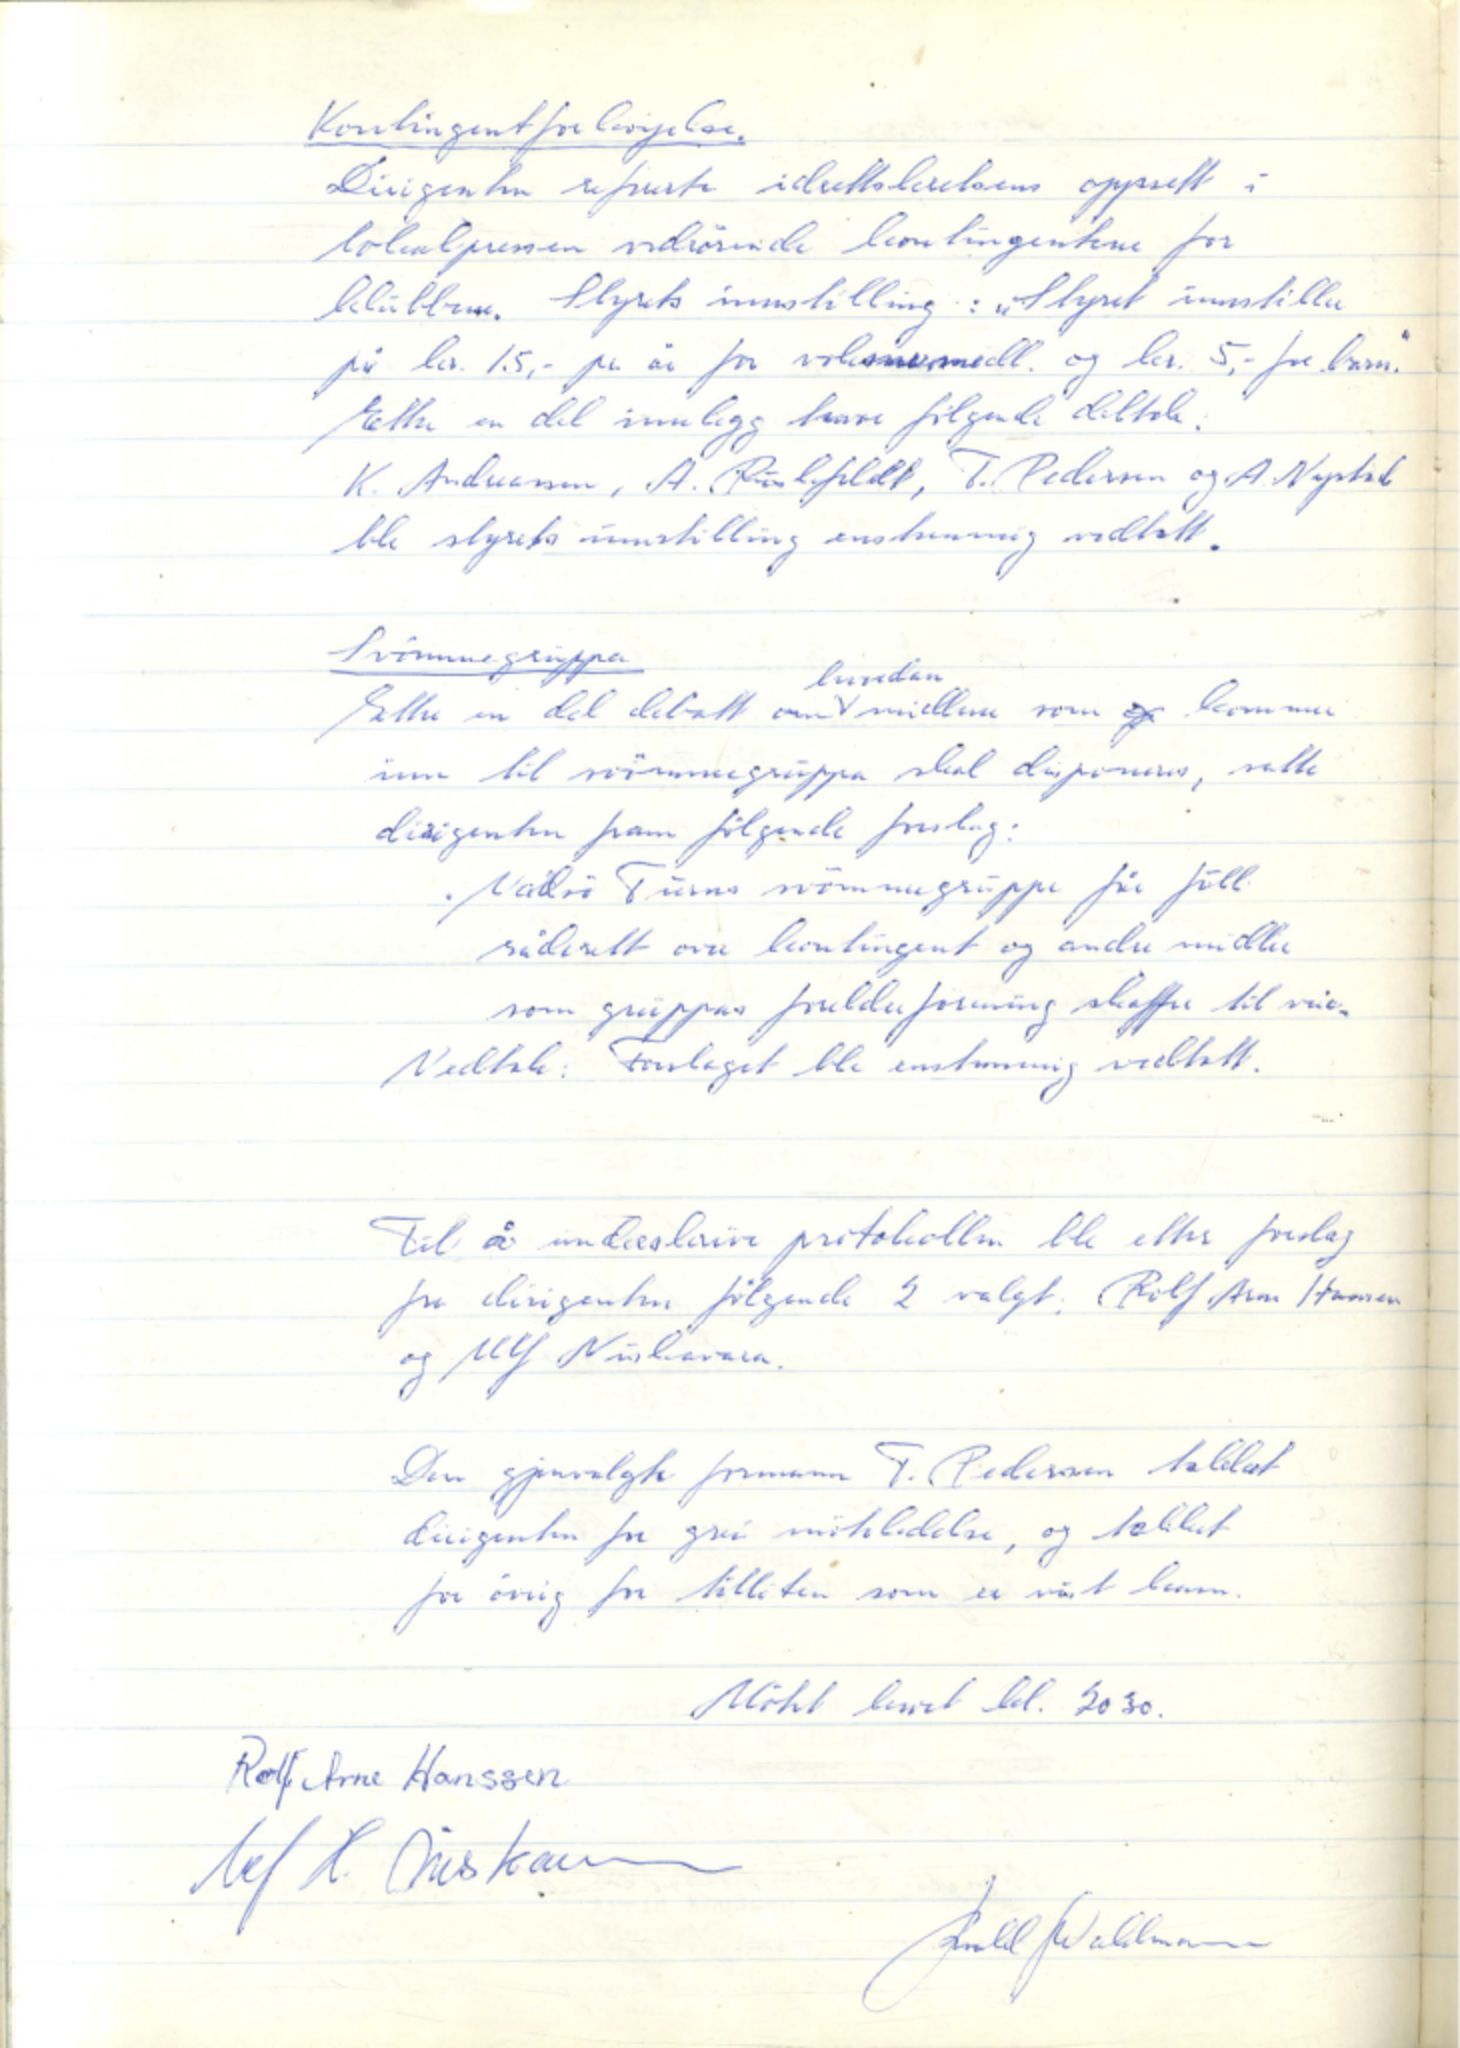 Kontingentforhøyelse.
Dirigenten refererte idrettskretsens oppsett i
lokalpressen vedrörende kontingentene for
klubbene. Styrets innstilling: "Styret innstiller
på kr. 15,- pr år for voksnemedl. og kr. 5,- for barn."
Etter en del innlegg hvor fölgende deltok:
K. Andreassen, A. Russfeldt, T. Pedersen og A. Nystad
ble styrets innstilling enstemmig vedtatt.
Svömmegruppa
hvordan
Etter en del debatt om midlene som kommer
inn til svömmegruppa skal disponeres, satte
dirigenten fram fölgende forslag:
Vadsö Turns svömmegruppe får full
råderett over kontingent og andre midler
som gruppas foreldreforening skaffer til veie.
Vedtak: Forslaget ble enstemmig vedtatt.
Til å underskrive protokollen ble etter forslag
fra dirigenten fölgende 2 valgt: Rolf Arne Hanssen
og Ulf Niskavara.
Den gjenvalgte formann T. Pedersen takket
dirigenten for grei möteledelse, og takket
for övrig for tilliten som er vist ham.
Mötet hevet kl. 2030.
Rolf Arne Hanssen
Ulf H. Niskavara
Waldmann